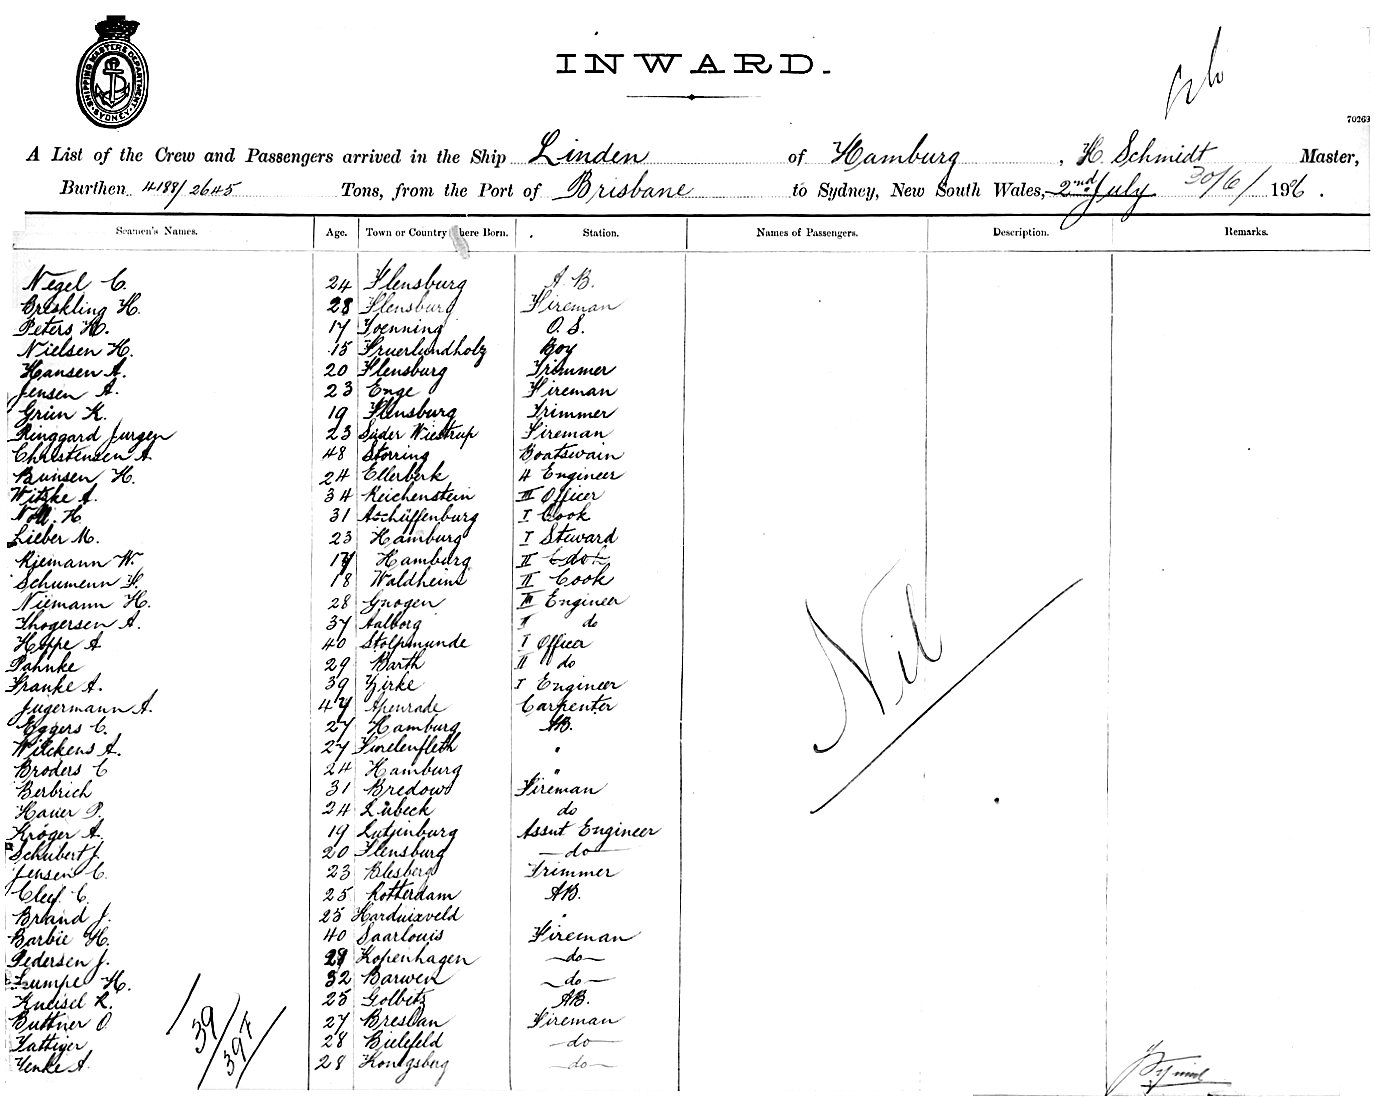 SHIPPING MASTERS DEPARTMENT SYDNEY
INWARD.
70263
A List of the Crew and Passengers arrived in the Ship Linden of Hamburg, H. Schmidt Master,
Burthen 4188/2645 Tons, from the Port of Brisbane to Sydney, New South Wales, 2nd July 30/6/ 1926.
Seamen's Names. Age. Town or Country where Born. Station. Names of Passengers. Description. Remarks.
Negel C. 24 Flensburg A.B.
Breskling H. 28 Flensburg Fireman
Peters H. 17 Toenning O.S.
Nielsen H. 15 Fruerlundholz Boy
Hansen A. 20 Flensburg Trimmer
Jensen A. 23 Enge Fireman
Grün K. 19 Flensburg Trimmer
Ringgard Jurgen 23 Süder Wiestrup Fireman
Christensen A. 48 Storring Boatswain
Bunsen H. 24 Ellerbek 4 Engineer
Witzke A. 34 Reichenstein III Officer
Noll H. 31 Aschüffenburg I Cook
Lieber M. 23 Hamburg I Steward
Riemann W. 17 Hamburg II do
Schumenn F. 18 Waldheim II Cook
Niemann H. 28 Gnogen III Engineer
Thogersen A. 37 Aalborg II do
Hoppe A 40 Stolpmunde I Officer
Pahnke 29 Barth II do
Franke A. 39 Zirke I Engineer
Jügermann A. 47 Apenrade Carpenter
Eggers C. 27 Hamburg AB.
Wilckens A. 27 "
Broders C 24 Hamburg "
Berbrich 31 Bredow Fireman
Hauer P. 24 Lübeck do
Kröger A. 19 Lutjinburg Assnt Engineer
Schubert J. 20 Flensburg do
Jensen C. 23 Blesberg Trimmer
Cleef C. 25 Rotterdam AB.
Brand J. 25 Hardinxveld "
Barbie H. 40 Saarlouis Fireman
Pedersen J. 29 Kopenhagen do
Lumpe H. 32 Barwen do
Kneisel R. 25 Golbitz AB.
Buttner O 27 Breslau Fireman
Tattiger 28 Bielefeld do
Yenke A. 28 Konigsberg do
Nil
39
397